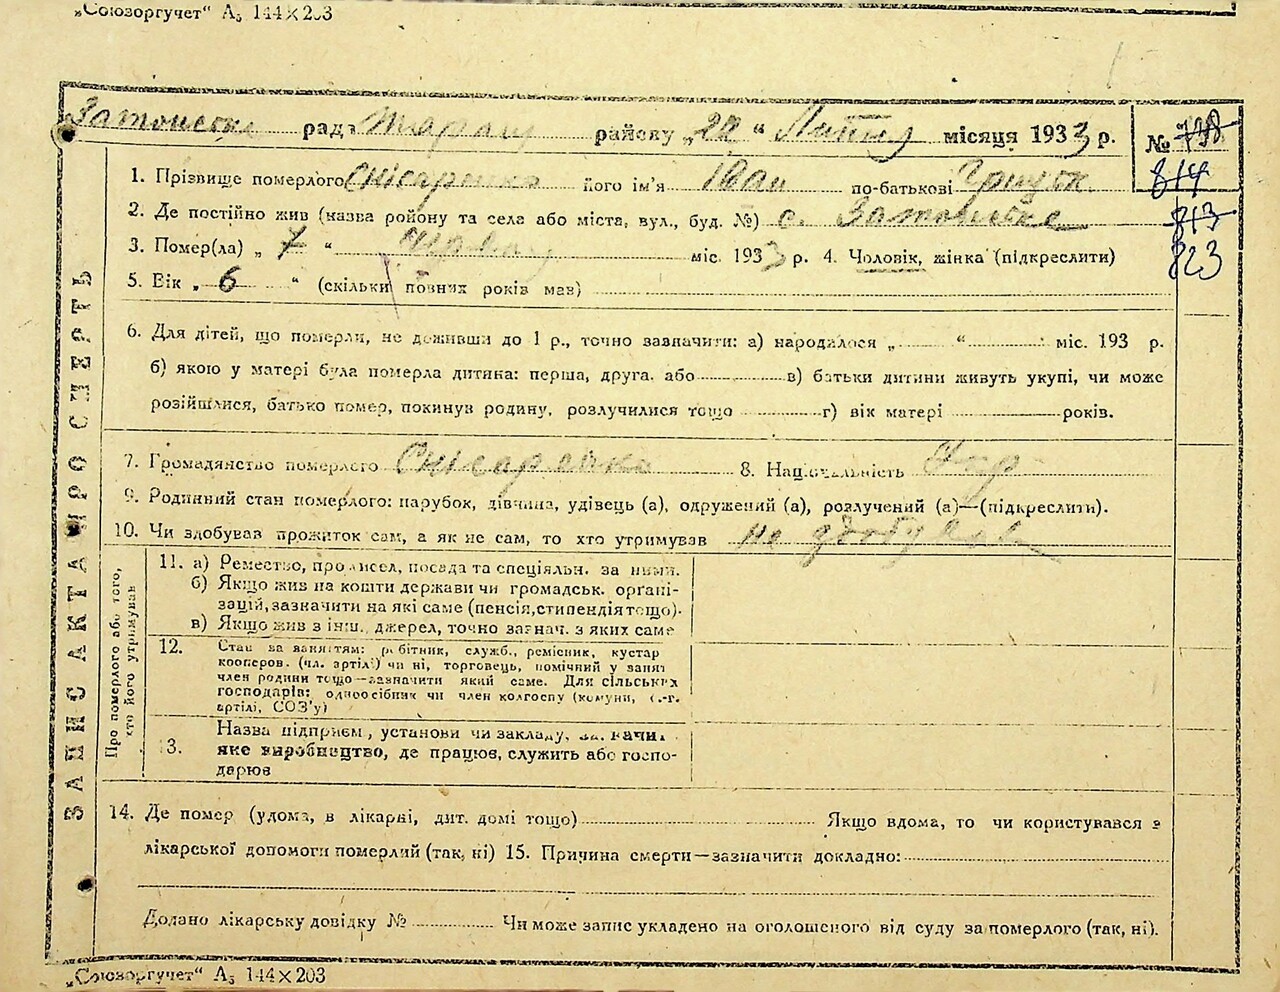 „Союзоргучет“ А₅ 144×203
Затонське рада районy „22“ Липня місяця 1933 р.
№ 798
814
813
823
1. Прізвище померлого Снісаренко його ім'я Іван по-батькові
2. Де постійно жив (назва ройону та села або міста, вул., буд. №) с. Затонське
3. Помер(ла) „7“ Червня міс. 1933 р. 4. Чоловік, жінка (підкреслити)
5. Вік „6“ (скільки повних років мав)
6. Для дітей, що померли, не доживши до 1 р., точно зазначити: а) народилося „ “ міс. 193 р.
б) якою у матері була померла дитина: перша, друга. або в) батьки дитини живуть укупі, чи може
розійшлися, батько помер, покинув родину, розлучилися тощо г) вік матері років.
7. Громадянство померлого Снісаренко 8. Національність Укр
9. Родинний стан померлого: парубок, дівчина, удівець (а), одружений (а), розлучений (а)—(підкреслити).
10. Чи здобував прожиток сам, а як не сам, то хто утримував не здобував
ЗАПИС АКТА ПРО СМЕРТЬ
Про померлого або того,
хто його утримував
11. а) Ремество, промисел, посада та спеціяльн. за ними.
б) Якщо жив на кошти держави чи громадськ. орґані-
зацій, зазначити на які саме (пенсія, стипендія тощо).
в) Якщо жив з інш. джерел, точно зазнач. з яких саме
12. Стан за заняттям: робітник, служб., ремісник, кустар
кооперов. (чл. артілі) чи ні, торговець, помічний у занят
член родини тощо—зазначити який саме. Для сільських
господарів: одноосібник чи член колгоспу (комуни, с.-г.
артілі, СОЗ'у)
13. Назва підприєм., установи чи закладу,
яке виробництво, де працює, служить або госпо-
дарює
14. Де помер (удома, в лікарні, дит. домі тощо) Якщо вдома, то чи користувався з
лікарської допомоги померлий (так, ні) 15. Причина смерти—зазначити докладно:
Додано лікарську довідку № Чи може запис укладено на оголошеного від суду за померлого (так, ні).
„Союзоргучет“ А₅ 144×203